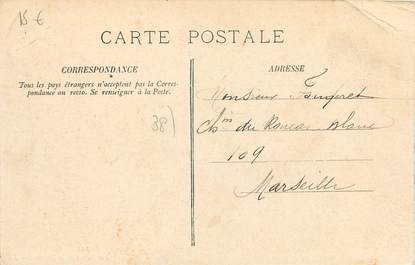 15 €
CARTE POSTALE
CORRESPONDANCE
Tous les pays étrangers n'acceptent pas la Corres-
pondance au recto. Se renseigner à la Poste.
38)
ADRESSE
Monsieur
Ch^m du Roucas Blanc
109
Marseille